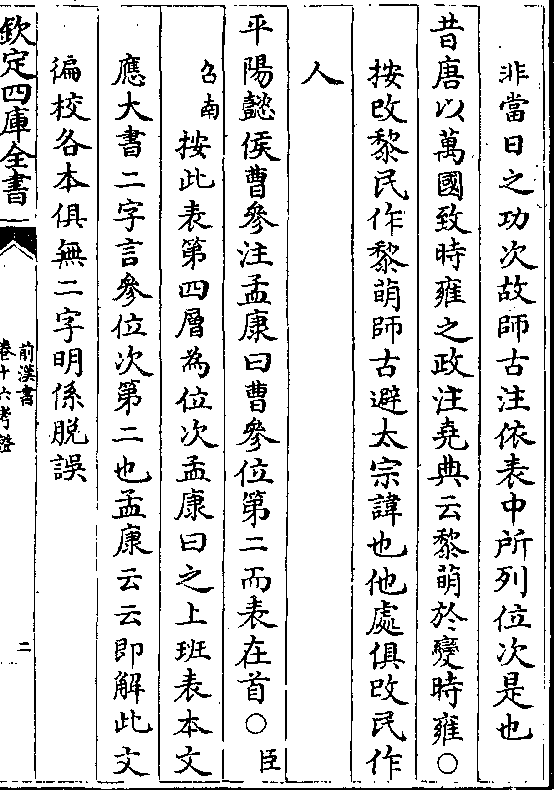 非當日之功次故師古注依表中所列位次是也
昔唐以萬國致時雍之政注堯典云黎萌於變時雍○
按改黎民作黎萌師古避太宗諱也他處俱改民作
人
平陽懿侯曹參注孟康曰曹參位第二而表在首○臣
召南按此表第四層為位次孟康曰之上班表本文
應大書二字言參位次第二也孟康云云即解此文
徧校各本俱無二字明係脱誤
欽定四庫全書
前漢書
卷十六考證
二